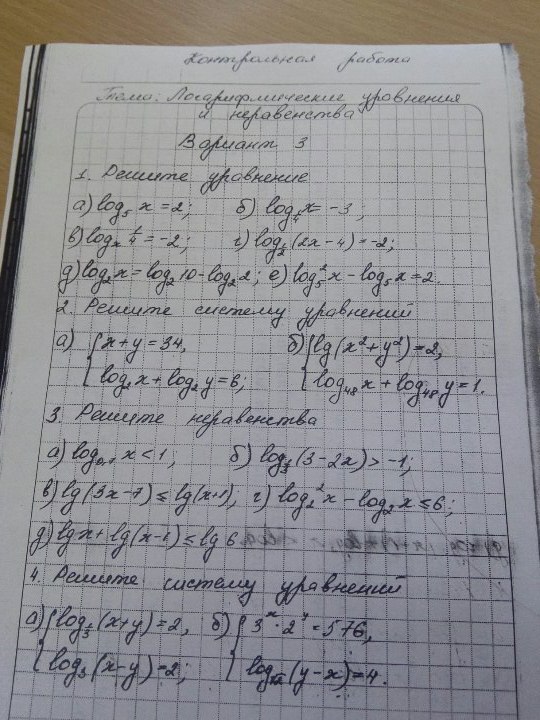 Контрольная работа
Тема: Логарифмические уравнения
и неравенства
Вариант 3
1. Решите уравнение
а) log₅ x = 2; б) log_{1/4} x = -3;
в) logₓ 1/4 = -2; г) log_{1/2} (2x - 4) = -2;
д) log₂ x = log₂ 10 - log₂ 2; е) log₅² x - log₅ x = 2.
2. Решите систему уравнений
а) { x + y = 34, б) { lg (x² + y²) = 2,
log₂ x + log₂ y = 6; log₄₈ x + log₄₈ y = 1.
3. Решите неравенства
а) x < 1; б) (3 - 2x) > -1;
в) lg (3x - 7) ≤ lg (x + 1); г) log₂² x - log₂ x ≤ 6;
д) lg x + lg (x - 1) ≤ lg 6
4. Решите систему уравнений
а) { log_{1/3} (x + y) = 2, б) { 3ˣ · 2ʸ = 576,
log₃ (x - y) = 2; (y - x) = 4.